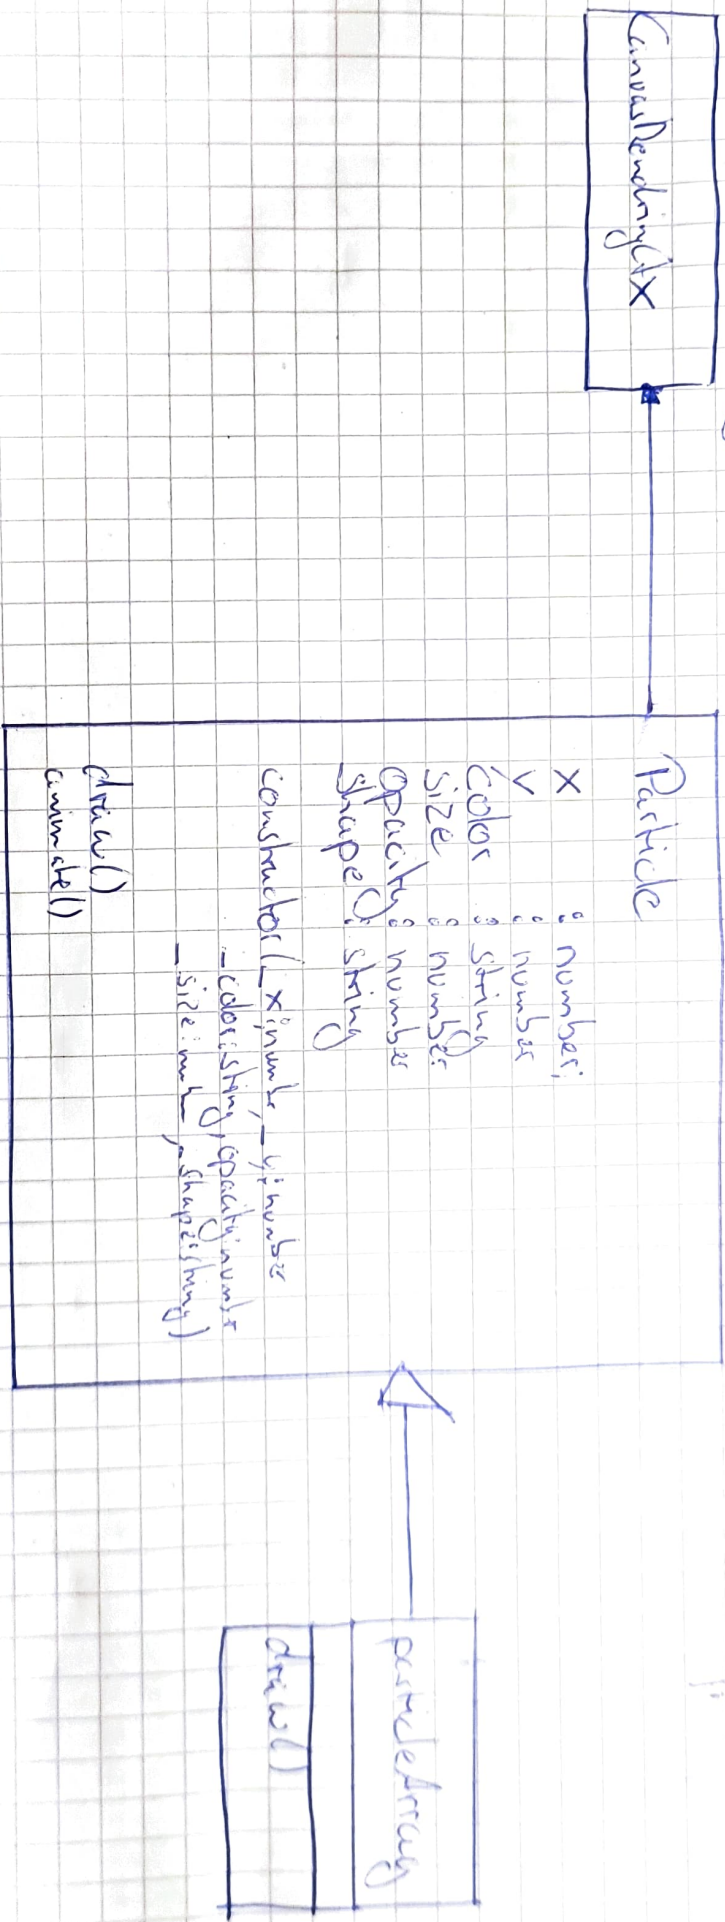 CanvasRendringCtx
Particle
x : number;
y : number
Color : string
size : number
opacity : number
shape : string
constructor(_x:number, _y:number
_color:string, opacity:number
_size:number, _shape:string)
draw()
animate()
particleArray
draw()